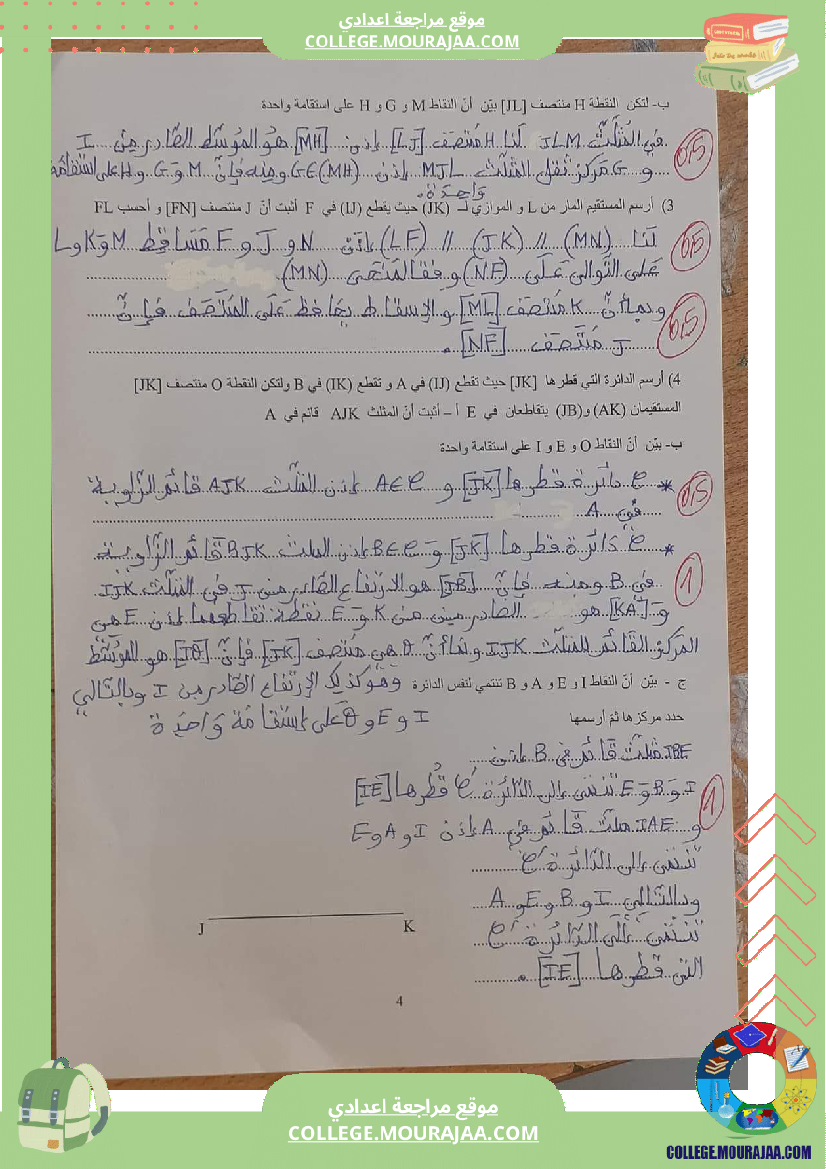 موقع مراجعة اعدادي
COLLEGE.MOURAJAA.COM
ب- لتكن النقطة H منتصف [JL] بيّن أنّ النقاط M و G و H على استقامة واحدة
في المُثلّث JLM لنا H مُنتصف [LJ] إذن [MH] هو المُوسّط الصّادر من I
و G مركز ثقل المثلّث MJL إذن G∈(MH) ومنه فإنّ M و G و H على استقامة
واحدة.
0,5
3) أرسم المستقيم المار من L و الموازي لـ (JK) حيث يقطع (IJ) في F أثبت أنّ J منتصف [FN] و أحسب FL
لنا (MN) // (JK) // (LF) إذن N و J و F مَسَاقِط M و K و L
على التّوالي على (NF) وفقا لمنحى (MN).
0,5
وبما أنّ K مُنتصف [ML] والإسقاط يحافظ على المُنتصف فإنّ
J مُنتصف [NF].
0,5
4) أرسم الدائرة التي قطرها [JK] حيث تقطع (IJ) في A و تقطع (IK) في B ولتكن النقطة O منتصف [JK]
المستقيمان (AK) و(JB) يتقاطعان في E أ – أثبت أنّ المثلث AJK قائم في A
ب- بيّن أنّ النقاط O و E و I على استقامة واحدة
* C دائرة قطرها [JK] و A∈C إذن المثلّث AJK قائم الزّاوية
في A
0,5
* C دائرة قطرها [JK] و B∈C إذن المثلث BJK قائم الزّاوية
في B ومنه فإنّ [JB] هو الارتفاع الصّادر من J في المثلّث IJK
و [KA] هو الصّادر من K و E نقطة تقاطعهما إذن E هي
1
المركز القائم للمثلّث IJK وبما أنّ O هي مُنتصف [JK] فإنّ [IO] هو الموسّط
ج - بيّن أنّ النقاط I و E و A و B تنتمي لنفس الدائرة وهو كذلك الإرتفاع الصّادر من I وبالتّالي
I و E و O على إستقامة واحدة
حدد مركزها ثمّ أرسمها
IBE مثلّث قائم في B إذن
I و B و E تنتمي إلى الدّائرة C' قُطرها [IE]
1
و IAE مثلّث قائم في A إذن I و A و E
تنتمي إلى الدّائرة C'
وبالتّالي I و B و E و A
تنتمي إلى الدّائرة C'
التي قطرها [IE].
J K
4
موقع مراجعة اعدادي
COLLEGE.MOURAJAA.COM
COLLEGE.MOURAJAA.COM